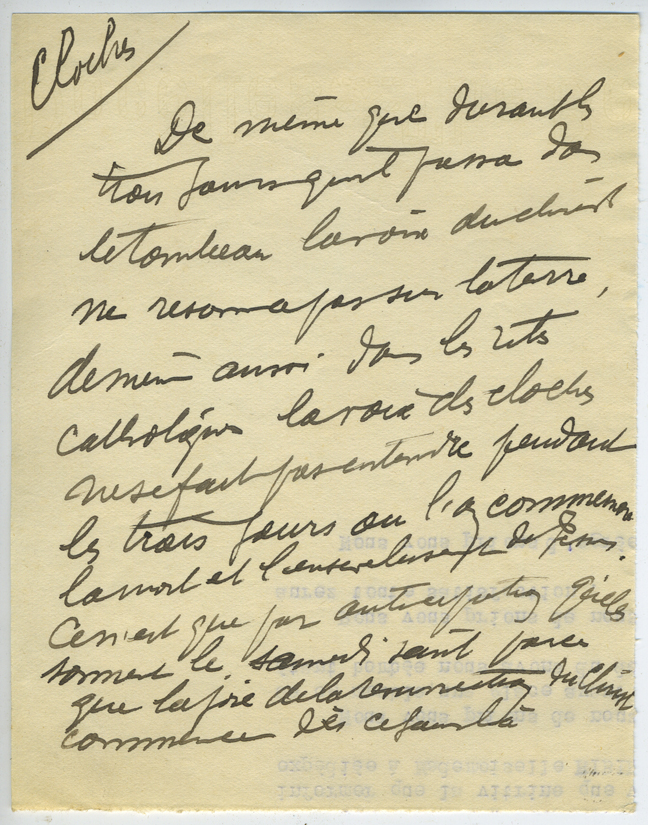 Cloches
De même que durant les
trois jours qu'il passa dans
le tombeau la voix du christ
ne resonna pas sur la terre,
de même aussi dans les rites
catholiques la voix des cloches
ne se fait pas entendre pendant
les trois jours ou l'on commemore
la mort et l'ensevelissement de Jesus.
Ce n'est que par anticipation qu'elles
sonnent le samedi saint parce
que la joie de la resurrection du Christ
commence dès ce jour là